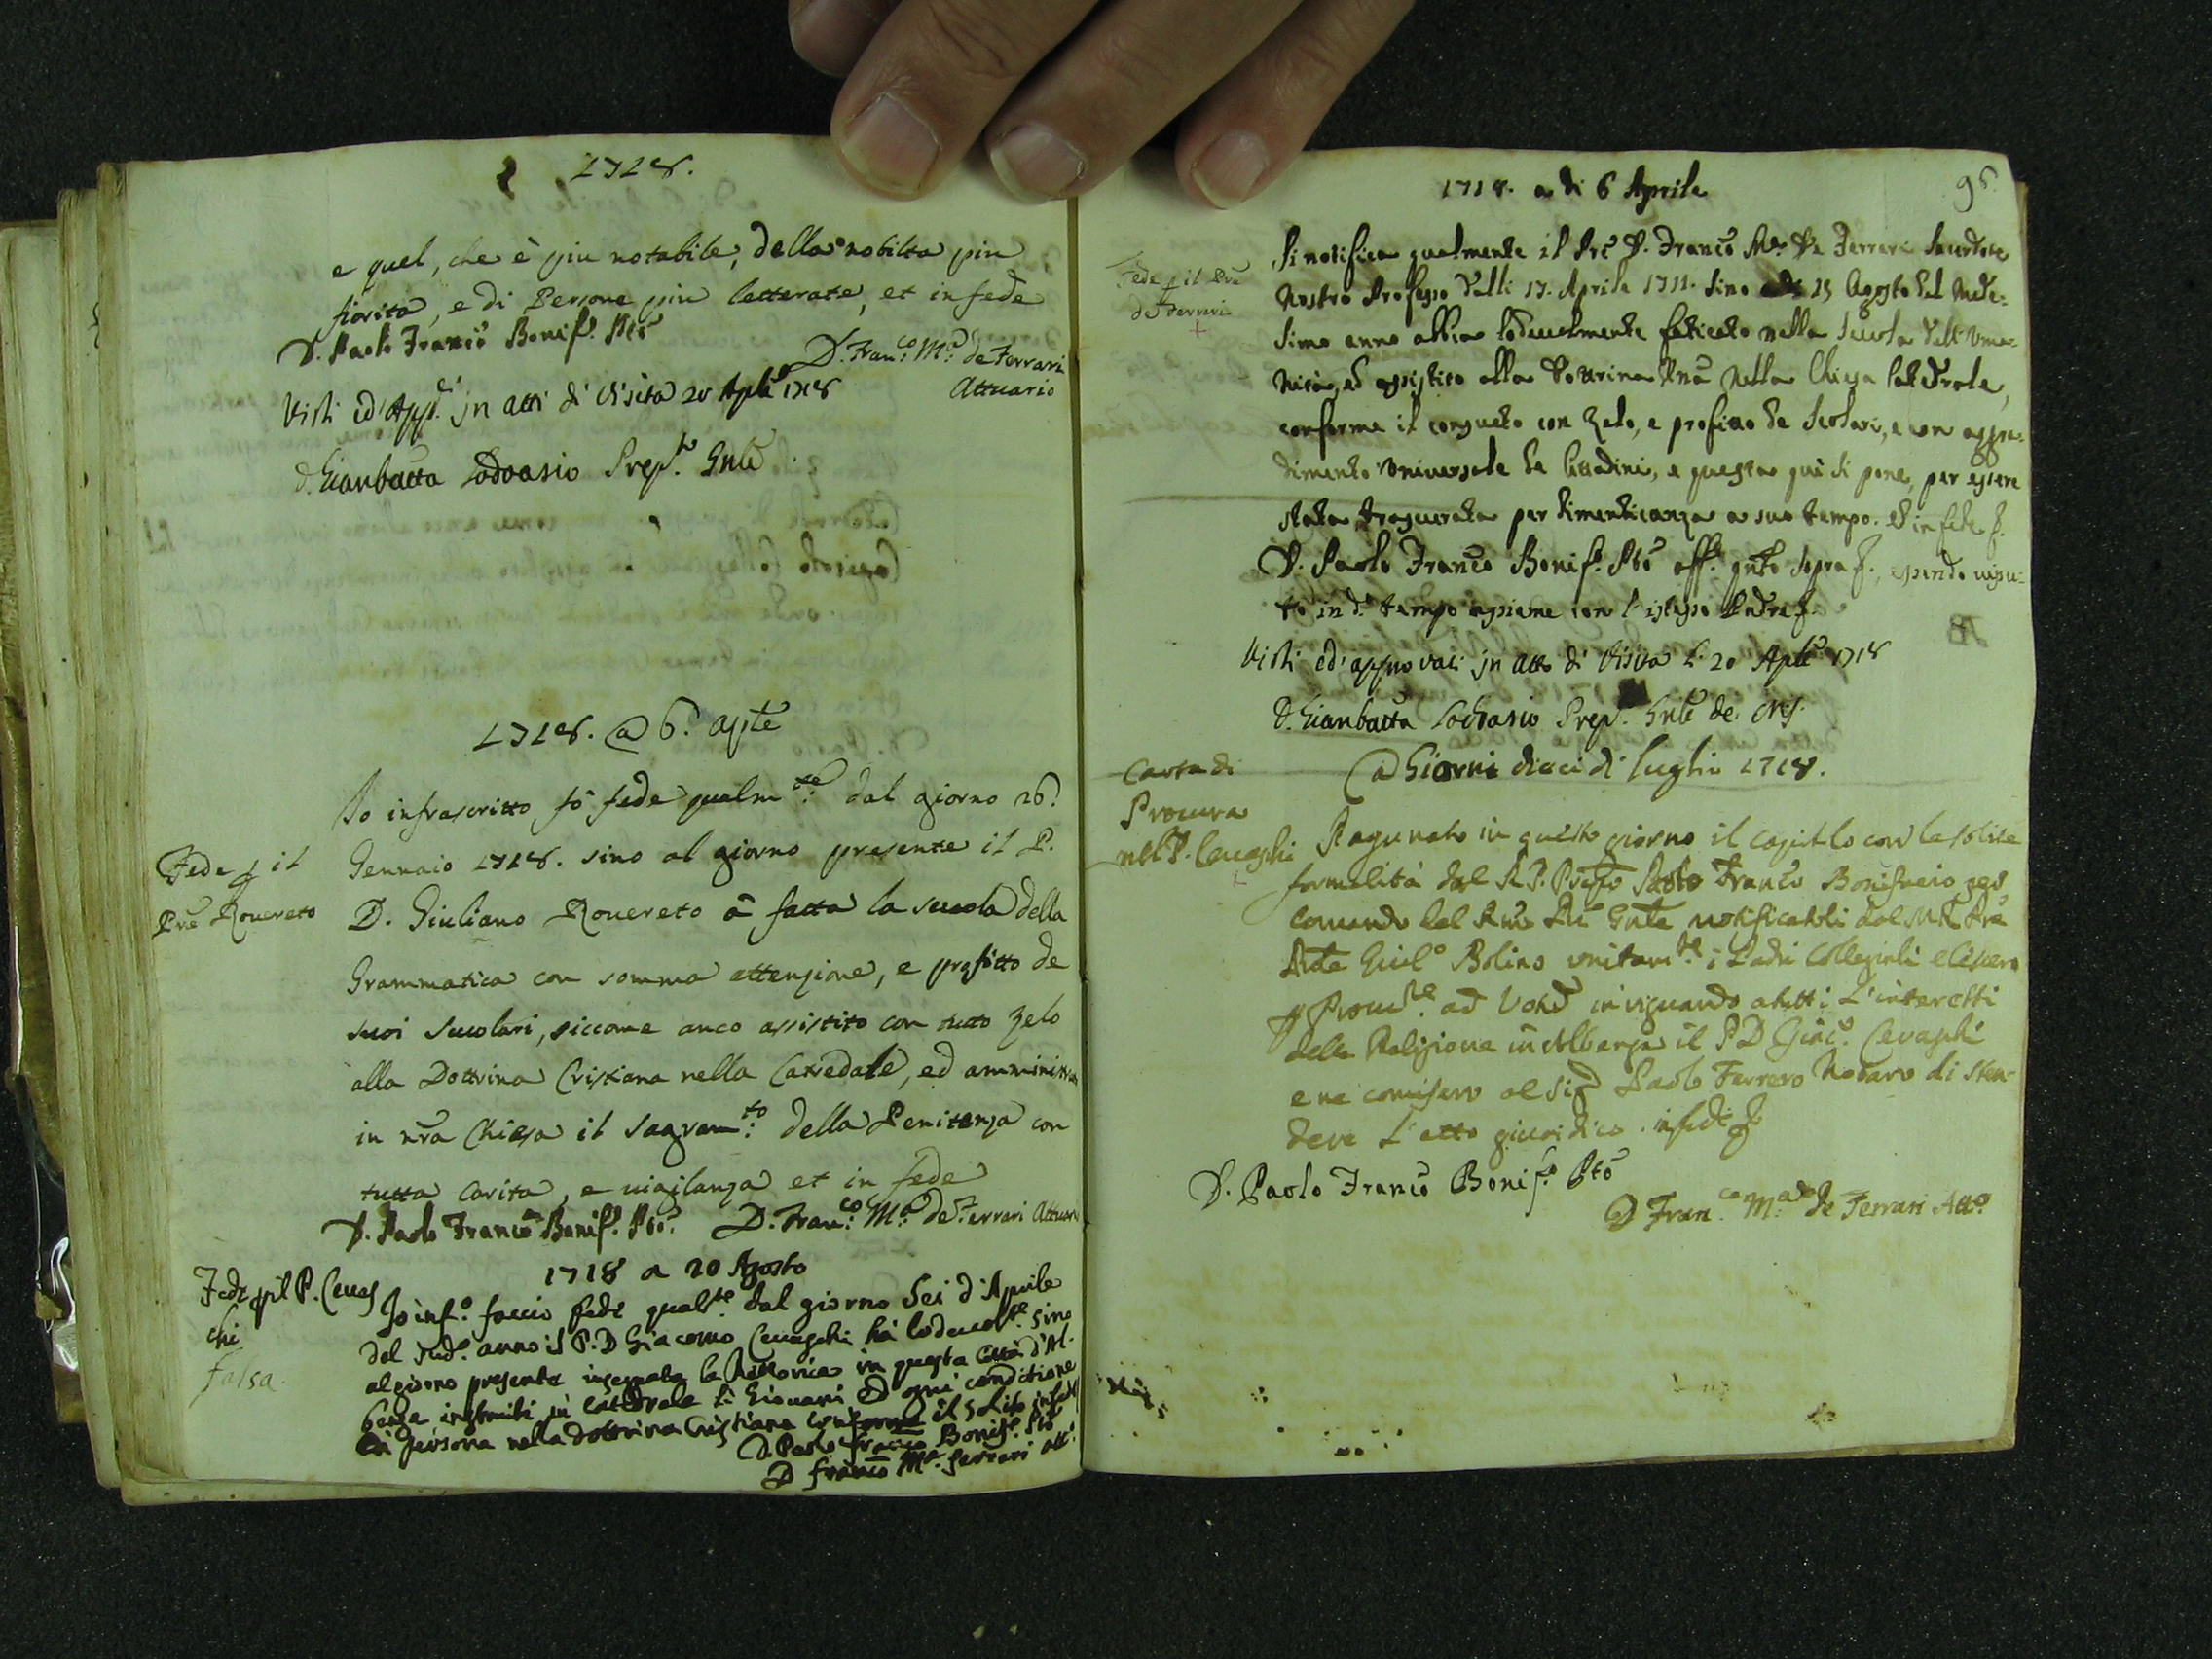 1718.
e quel, che è piu notabile, della nobilta piu
fiorita, e di Persone piu letterate, et in fede
D. Paolo Franco Bonif.º Pto
D. Fran.co M.a de Ferrari
Attuario
Visti ed App.ti jn atti di Visita 20 Aple 1718
d. Gianbatta Lodoasio Prep.to Gnle
1718. @ 6. aple
Fede p il
Pre Rouereto
Io infrascritto fò fede qualm.te dal giorno 26.
Gennaio 1718. sino al giorno presente il P.
D. Giuliano Rouereto à fatta la scuola della
Grammatica con somma attenzione, e profitto de
suoi Scuolari, siccome anco assistito con tutto zelo
alla Dottrina Cristiana nella Catredale, ed amministra
in nra Chiesa il Sagram.to della Penitenza con
tutta Carita, e uigilanza et in fede
D. Paolo Franco Bonif.º Pto. D. Fran.co M.a de Ferrari Attuar
1718 a 20 Agosto
Fede p il P. Ceuas
chi
falsa.
Io inf.º faccio fede qual.te dal giorno Sei d'Aprile
del sud.º anno il P. D Giacomo Ceuaschi hà lodeuol.te sino
al giorno presente insegnata la Rettorica in questa Città d'Al-
benga instruiti in Cattedrale li Giouani, ed ogni conditione
di persona nella dottrina Cristiana conforme il solito in fede
D. Paolo Franco Bonif.º Pto
D Franco M.a Ferrari att.º
95
1718. a di 6 Aprile
Fede p il Pre
de Ferrari
+
Si notifica qualmente il Pre D. Franco M.a De Ferrari Sacerdote
Nostro Professo dalli 17. Aprile 1711. sino 15 Agosto del mede-
simo anno abbia lodeuolmente faticato nella Scuola dell'Uma-
nità, ed assistito alla Dottrina Xna nella Chiesa Catedrale,
conforme il consueto con zelo, e profitto de Scolari, e con aggra-
dimento vniversale de Cittadini, e questa quì si pone, per essere
stata per dimenticanza a suo tempo. ed in fede
D. Paolo Franco Bonif.º Pto aff.º qnto sopra, essendo uissu-
to in d.º tempo assieme con l'istesso Padre
Visti ed' approvati jn atto di Visita li 20 Aple 1718
D. Gianbatta Lodoasio Prep.to Gnle de CRS.
@ Giorni dieci di luglio 1718.
Carta di
Procura
nel P. Ceuaschi
+
Ragunato in questo giorno il capitolo con le solite
formalità dal R. P. Prepto Paolo Franco Bonifacio per
Comando del Rmo Pre Gnle notificatoli dal M.R. Pre
Giul.º Bolino vnitam.te i Padri Collegiali elessero
p Procu.re ad in riguardo a tutti L'interessi
della Religione in Albenga il P D Giac.º Cevaschi
e ne comisero al Sig.r Paolo Ferrero Nodaro di sten-
dere L'atto giuridico. in fede
D. Paolo Franco Bonif.º Pto
D Fran.co M.a de Ferrari Att.º